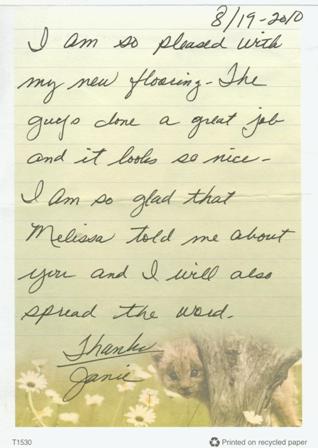 8/19-2010
I am so pleased with
my new flooring - The
guys done a great job
and it looks so nice -
I am so glad that
Melissa told me about
you and I will also
spread the word.
Thanks
Janie
T1530
Printed on recycled paper